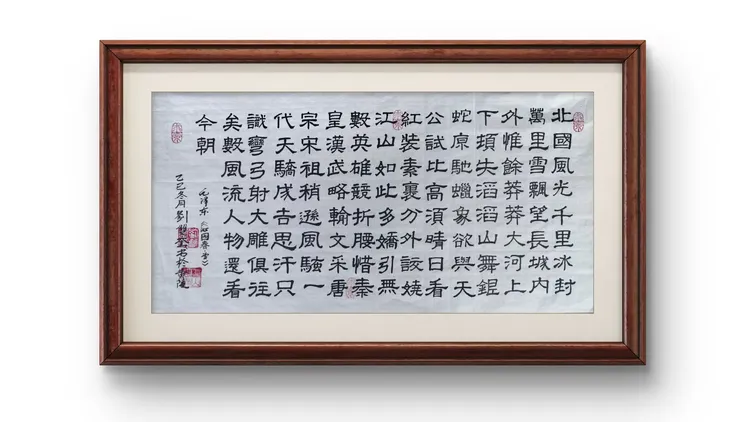 北國風光千里冰封
萬里雪飄望長城内
外惟餘莽莽大河上
下頓失滔滔山舞銀
蛇原馳蠟象欲與天
公試比高須晴日看
紅裝素裹分外嬈
江山如此多嬌引無
數英雄競折腰惜秦
皇漢武略輸文采唐
宗宋祖稍遜風騷一
代天驕成吉思汗只
識彎弓射大雕俱往
矣數風流人物還看
今朝
毛澤東《沁園春雪》
乙巳冬月劉書於